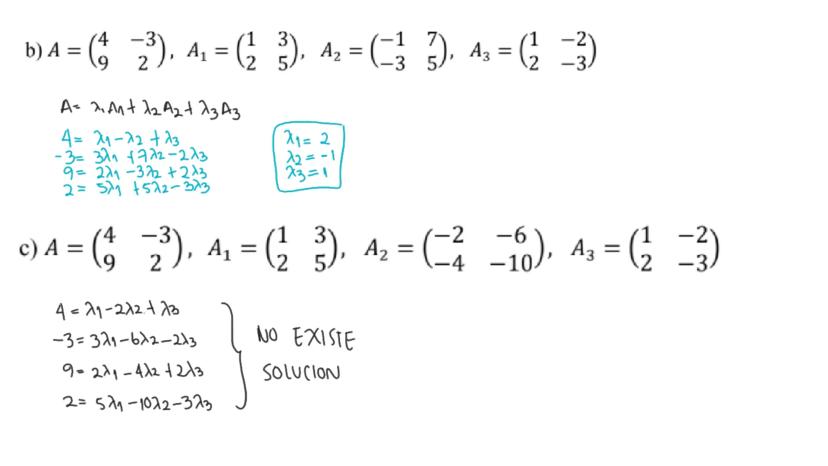 b) A = (4 −3 9 2), A₁ = (1 3 2 5), A₂ = (−1 7 −3 5), A₃ = (1 −2 2 −3)
A= λ₁A₁ + λ₂A₂ + λ₃A₃
4= λ₁−λ₂ + λ₃
-3= 3λ₁ +7λ₂−2λ₃
9= 2λ₁ −3λ₂ +2λ₃
2= 5λ₁ +5λ₂−3λ₃
λ₁= 2
λ₂= −1
λ₃= 1
c) A = (4 −3 9 2), A₁ = (1 3 2 5), A₂ = (−2 −6 −4 −10), A₃ = (1 −2 2 −3)
4=λ₁−2λ₂+λ₃
-3=3λ₁−6λ₂−2λ₃
9=2λ₁−4λ₂+2λ₃
2= 5λ₁−10λ₂−3λ₃
NO EXISTE
SOLUCION